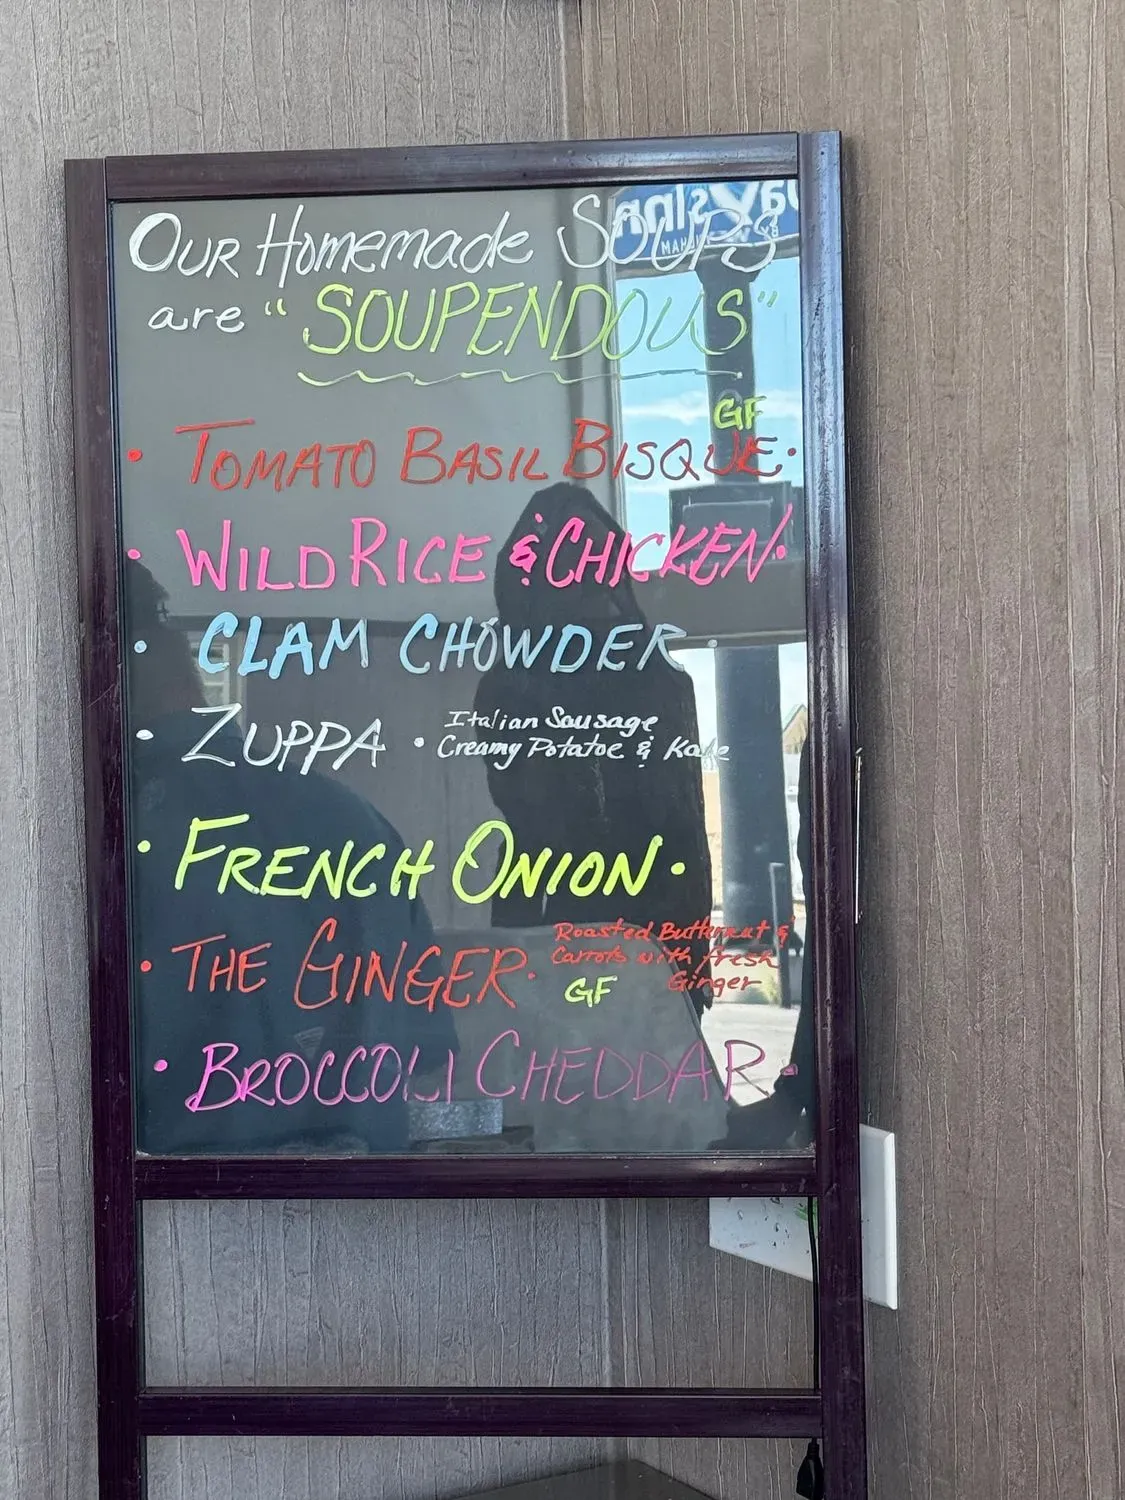 Our Homemade Soups
are "SOUPENDOUS"
GF
• TOMATO BASIL BISQUE •
• WILD RICE & CHICKEN •
• CLAM CHOWDER •
• ZUPPA • Italian Sausage
Creamy Potatoe & Kale
• FRENCH ONION •
• THE GINGER • Roasted Butternut &
Carrots with fresh
Ginger
GF
• BROCCOLI CHEDDAR •
Days Inn
BY WYNDHAM